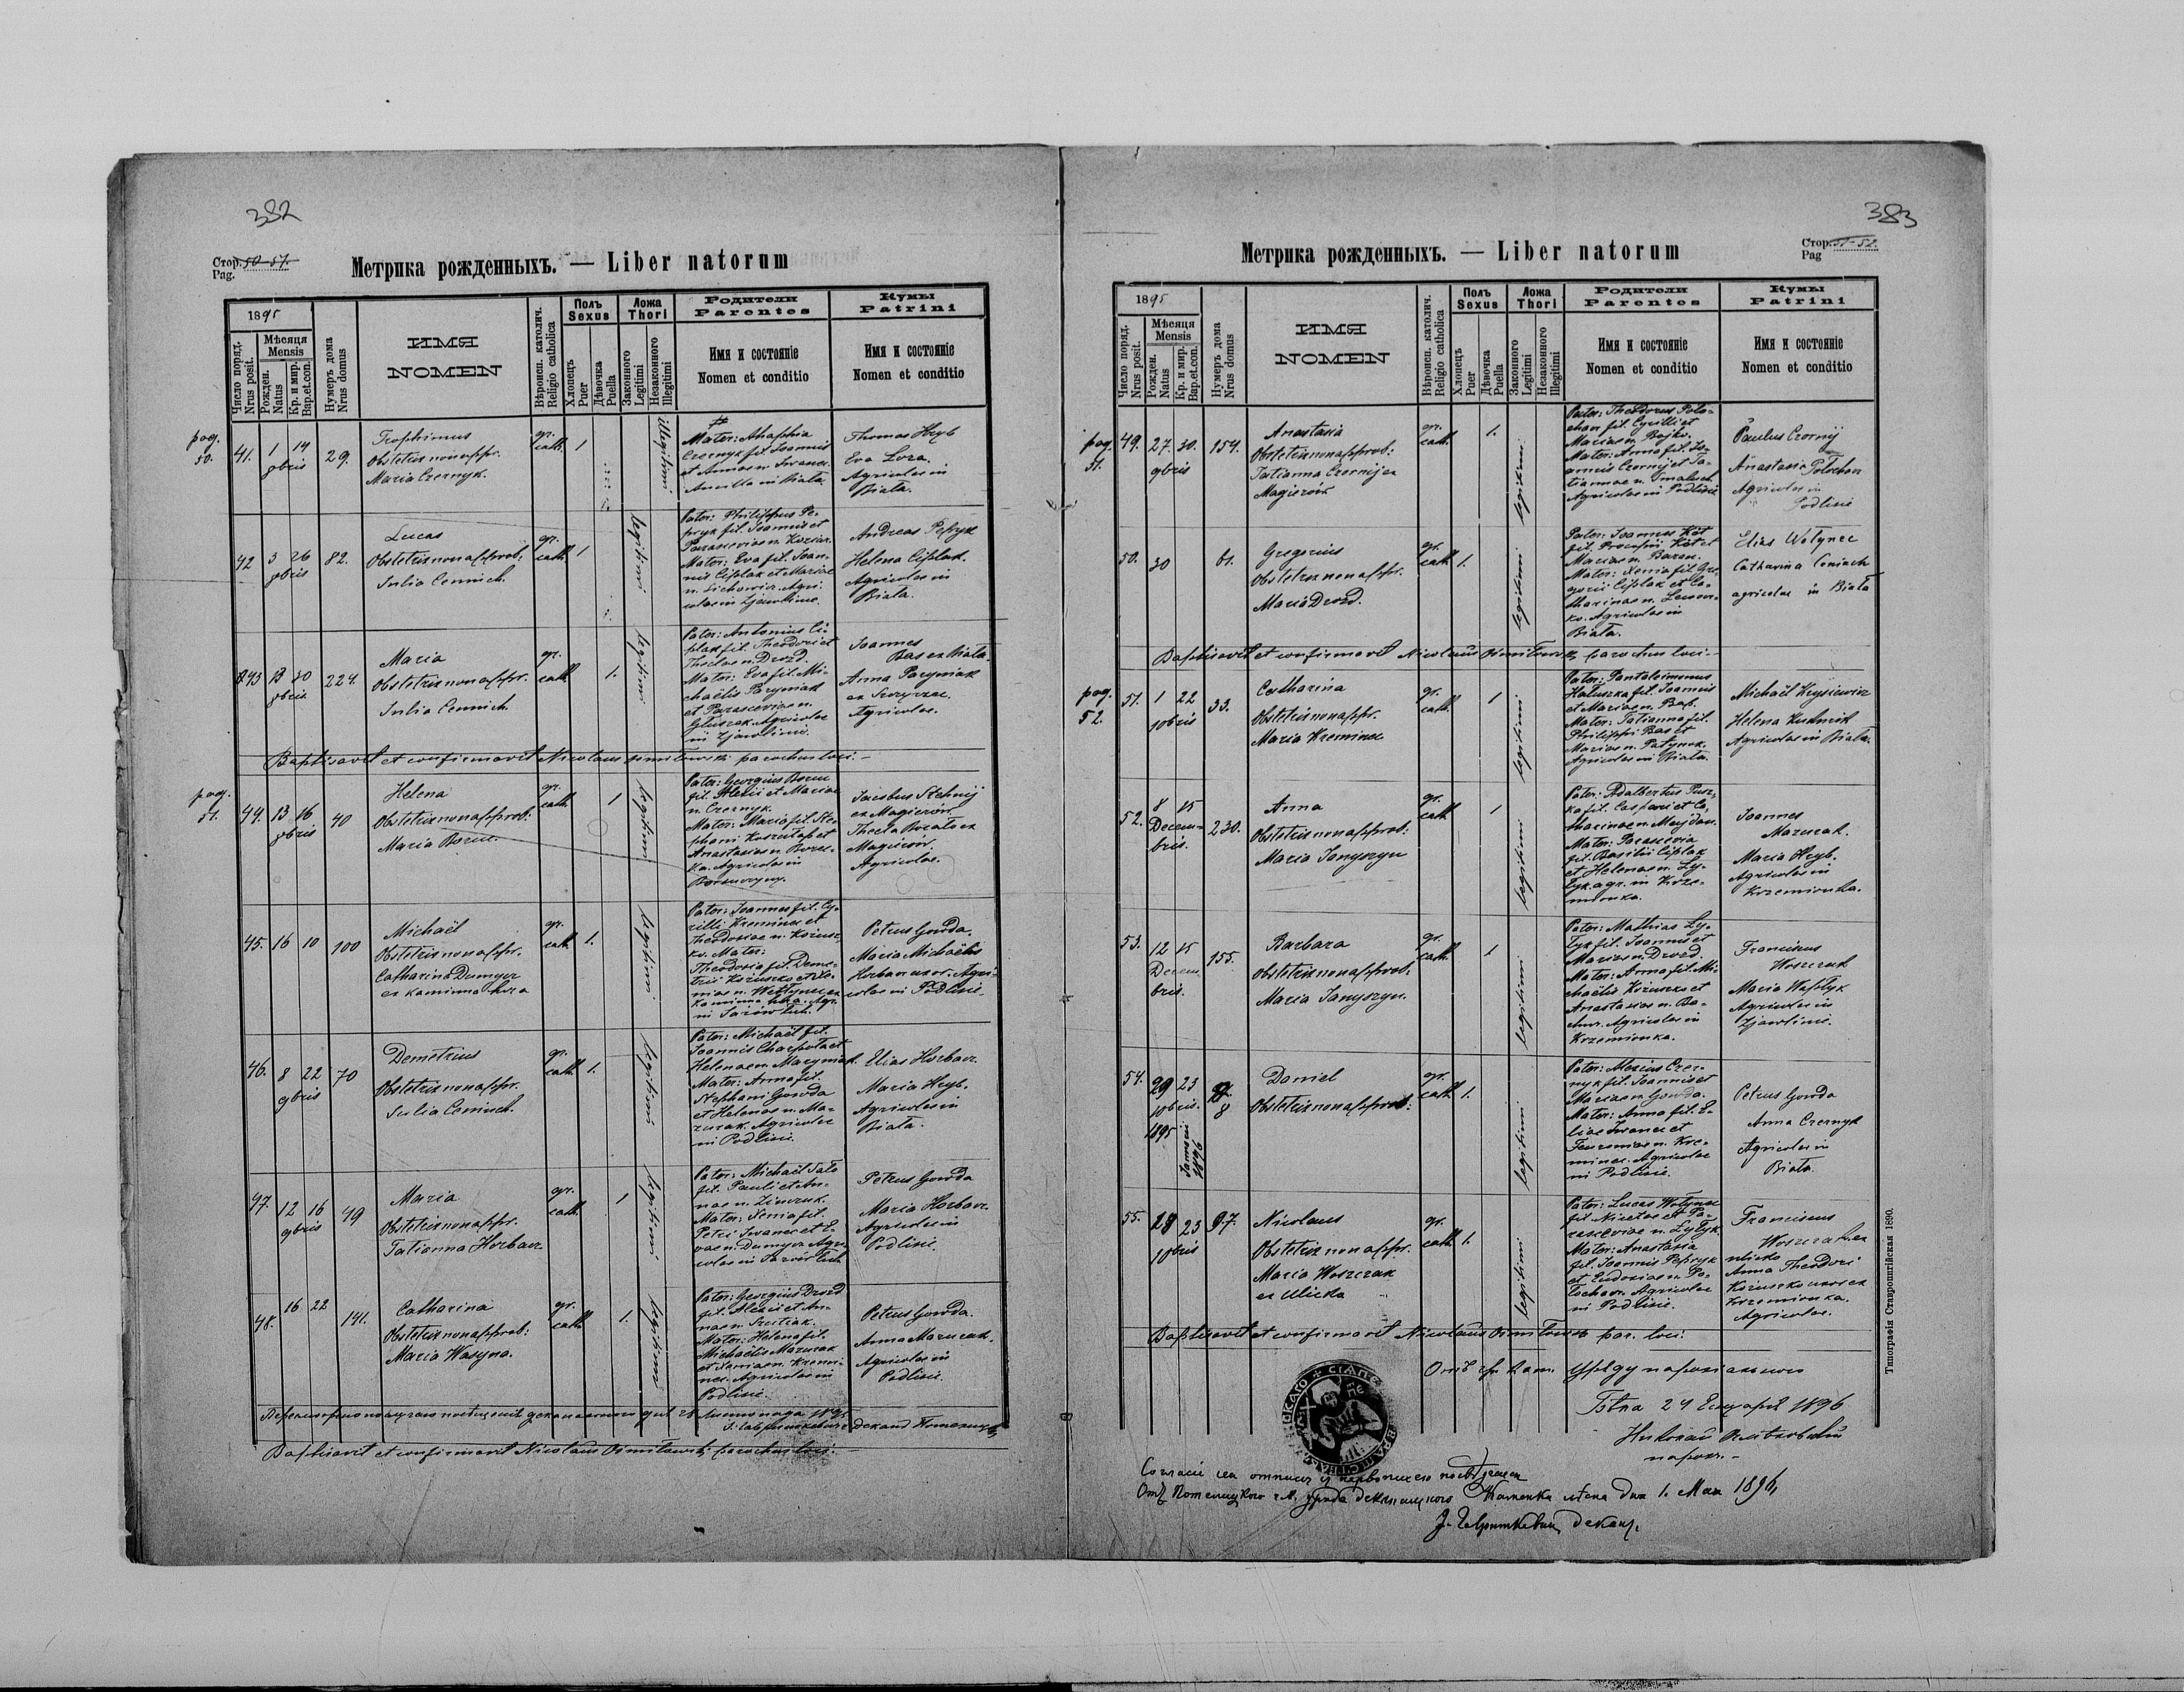 382
Стор. 50-51.
Pag.
Метрика рожденныхъ. — Liber natorum
1895
Число поряд.
Nrus posit.
Мѣсяця
Mensis
Рожден.
Natus
Кр. и мир.
Bap.et.con.
Нумеръ дома
Nrus domus
ИМЯ
NOMEN
Вѣроисп. католич.
Religio catholica
Полъ
Sexus
Хлопецъ
Puer
Дѣвочка
Puella
Ложа
Thori
Законного
Legitimi
Незаконного
Illegitimi
Родители
Parentes
Имя и состояніе
Nomen et conditio
Кумы
Patrini
Имя и состояніе
Nomen et conditio
pag.
50.
41.
1 14
9bris
29.
Trophimus
Obstetrix non appr.
Maria Czernyk.
gr.
cath.
1
illegitimi
Mater: Ahaphia
Czernyk fil. Joannis
et Annae n. Iwanec.
Ancilla in Biała
Thomas Hryb
Eva Loza.
Agricolae in
Biała.
42
3 26
9bris
82.
Lucas
Obstetrix non approb:
Julia Cennich.
gr.
cath.
1
legitimi
Pater: Philippus Pe-
pryk fil. Joannis et
Parasceviae n.
Mater: Eva fil. Joan-
nis Ciplak et Mariae
n. Lichowicz. Agri-
colae in Zjawlinie.
Andreas Pepryk
Helena Ciplak.
Agricolae in
Biała.
43
13 30
9bris
224.
Maria
Obstetrix non appr.
Julia Cennich.
gr.
cath
1.
legitimi
Pater: Antonius Ci-
plak fil. Theodori et
Theclae n. Drozd.
Mater: Eva fil. Mi-
chaëlis Paryniak
et Parasceviae n.
Głuszek. Agricolae
in Zjawlinie.
Joannes
Bas ex Biała.
Anna Paryniak
ex
Agricolae.
Baptisavit et confirmavit Nicolaus Osmiłowski parochus loci. —
pag.
51.
44.
13 16
9bris
40
Helena
Obstetrix non approb:
Maria Borue.
gr.
cath.
1
legitimi
Pater: Georgius Borue
fil. Alexii et Mariae
n. Czernyk.
Mater: Maria fil. Ste-
phani et
Anastasiae n.
Agricolae in
Jacobus Stehnij
ex Magierów
Thecla ex
Magierów.
Agricolae.
45.
16 10
100
Michaël
Obstetrix non appr.
Catharina Dumycz
ex Kaminna hora
gr.
cath.
1.
legitimi
Pater: Joannes fil. Cy-
rilli Kreminec et
Theodosiae n. Koziusz-
ko. Mater:
Theodosia fil. Deme-
trii Koziuszko et Xe-
niae n. Wołłynec ex
Kaminna hora. Agr.
in
Petrus Gowda.
Maria Michaëlis
Horbacz uxor. Agri-
colae in Podlisie.
46.
8 22
9bris
70
Demetrius
Obstetrix non appr.
Julia Cennich.
gr.
cath.
1.
legitimi
Pater: Michaël fil.
Joannis Charpota et
Helenae n. Maryniak.
Mater: Anna fil.
Stephani Gowda
et Helenae n. Ma-
zurak. Agricolae
in Podlisie.
Elias Horbacz.
Maria Hryb.
Agricolae in
Biała.
47.
12 16
9bris
49
Maria
Obstetrix non appr.
Tatianna Horbacz
gr.
cath.
1
legitimi
Pater: Michaël Sało
fil. Pauli et An-
nae n. Zinczuk.
Mater: Xenia fil.
Petri Iwanec et E-
vae n. Dumycz. Agri-
colae in
Petrus Gowda
Maria Horbacz.
Agricolae in
Podlisie.
48.
16 22
141.
Catharina
Obstetrix non approb:
Maria Wasyna.
gr.
cath.
1.
legitimi
Pater: Georgius Drozd
fil. Alexii et An-
nae n.
Mater: Helena fil.
Michaëlis Mazurak
et Xeniae n. Kremi-
nec. Agricolae in
Podlisie.
Petrus Gowda.
Anna Mazurak.
Agricolae in
Podlisie.
декан
Baptisavit et confirmavit Nicolaus Osmiłowski parochus loci. —
383
Стор. 51-52.
Pag
Метрика рожденныхъ. — Liber natorum
1895
Число поряд.
Nrus posit.
Мѣсяця
Mensis
Рожден.
Natus
Кр. и мир.
Bap.et.con.
Нумеръ дома
Nrus domus
ИМЯ
NOMEN
Вѣроисп. католич.
Religio catholica
Полъ
Sexus
Хлопецъ
Puer
Дѣвочка
Puella
Ложа
Thori
Законного
Legitimi
Незаконного
Illegitimi
Родители
Parentes
Имя и состояніе
Nomen et conditio
Кумы
Patrini
Имя и состояніе
Nomen et conditio
pag.
51.
49.
27. 30.
9bris
154.
Anastasia
Obstetrix non approb:
Tatianna Czornij ex
Magierów
gr.
cath.
1.
legitimi
Pater: Theodorus Poło-
chan fil. Cyrilli et
Mariae n. Bojko.
Mater: Anna fil. Jo-
annis Czornij et Ta-
tiannae n.
Agricolae in Podlisie
Paulus Czornij
Anastasia Połochan
Agricolae in
Podlisie
50.
30
61.
Gregorius
Obstetrix non appr.
Maria Drozd.
gr.
cath
1.
legitimi
Pater: Joannes Kot
fil. Procopii Kot et
Mariae n. Baran.
Mater: Xenia fil. Gre-
gorii Ciplak et Ca-
tharinae n.
Agricolae in
Biała.
Elias Wołynec
Catharina Ceniuch
agricolae in Biała
Baptisavit et confirmavit Nicolaus Osmiłowski parochus loci. —
pag.
52.
51.
1 22
10bris
33.
Catharina
Obstetrix non appr.
Maria Kreminec
gr.
cath.
1
legitimi
Pater: Pantaleimonus
Hałuszka fil. Joannis
et Mariae n. Bas.
Mater: Tatianna fil.
Philippi Bas et
Mariae n. Patynok.
Agricolae in Biała.
Michaël Krysiewicz
Helena Kushnik
Agricolae in Biała.
52.
8 15
Decem-
bris.
230.
Anna
Obstetrix non approb:
Maria Janyszyn
gr.
cath
1
legitimi
Pater: Adalbertus Pusz-
ka fil. Caspari et Ca-
tharinae n. Majdan.
Mater: Parascevia
fil. Basilii Ciplak
et Helenae n. Ły-
łyk agr. in Krze-
mionka.
Joannes
Mazurak.
Maria Hryb.
Agricolae in
Krzemionka.
53.
12 15
Decem-
bris.
155.
Barbara
Obstetrix non approb:
Maria Janyszyn.
gr.
cath.
1
legitimi
Pater: Mathias Ły-
łyk fil. Joannis et
Mariae n. Drozd.
Mater: Anna fil. Mi-
chaëlis Koziuszko et
Anastasiae n.
Agricolae in
Krzemionka.
Franciscus
Woszczak
Maria Wasylyk
Agricolae in
Zjawlinie.
54.
29 23
10bris.
1895
Januarii
1896
8
Daniel
Obstetrix non approb:
gr.
cath
1.
legitimi
Pater: Alexius Czer-
nyk fil. Joannis et
Mariae n. Gowda.
Mater: Anna fil. E-
liae Iwanec et
Feuroniae n. Kre-
minec. Agricolae
in Podlisie.
Petrus Gowda
Anna Czernyk
Agricolae in
Biała.
55.
28 23
10bris
97.
Nicolaus
Obstetrix non appr.
Maria Woszczak
ex Ulicka
gr.
cath
1.
legitimi
Pater: Lucas Wołynec
fil. Nicetae et Pa-
rasceviae n. Łyłyk
Mater: Anastasia
fil. Joannis Pepryk
et Eudoxiae n. Po-
łochan. Agricolae
in Podlisie.
Franciscus
Woszczak ex
Ulicka
Anna Theodori
Koziuszko uxor ex
Krzemionka.
Agricolae.
Baptisavit et confirmavit Nicolaus Osmiłowski par. loci.
Отъ гр. кат. уряду парохіального
Бѣла 24 Януарія 1896
Николай Осмиловскій
парох. -
Отъ Потелицкого гк. уряда деканального Каменка лѣсна дня 1. Мая 1896
декан.
Типографія Ставропигійская 1890.